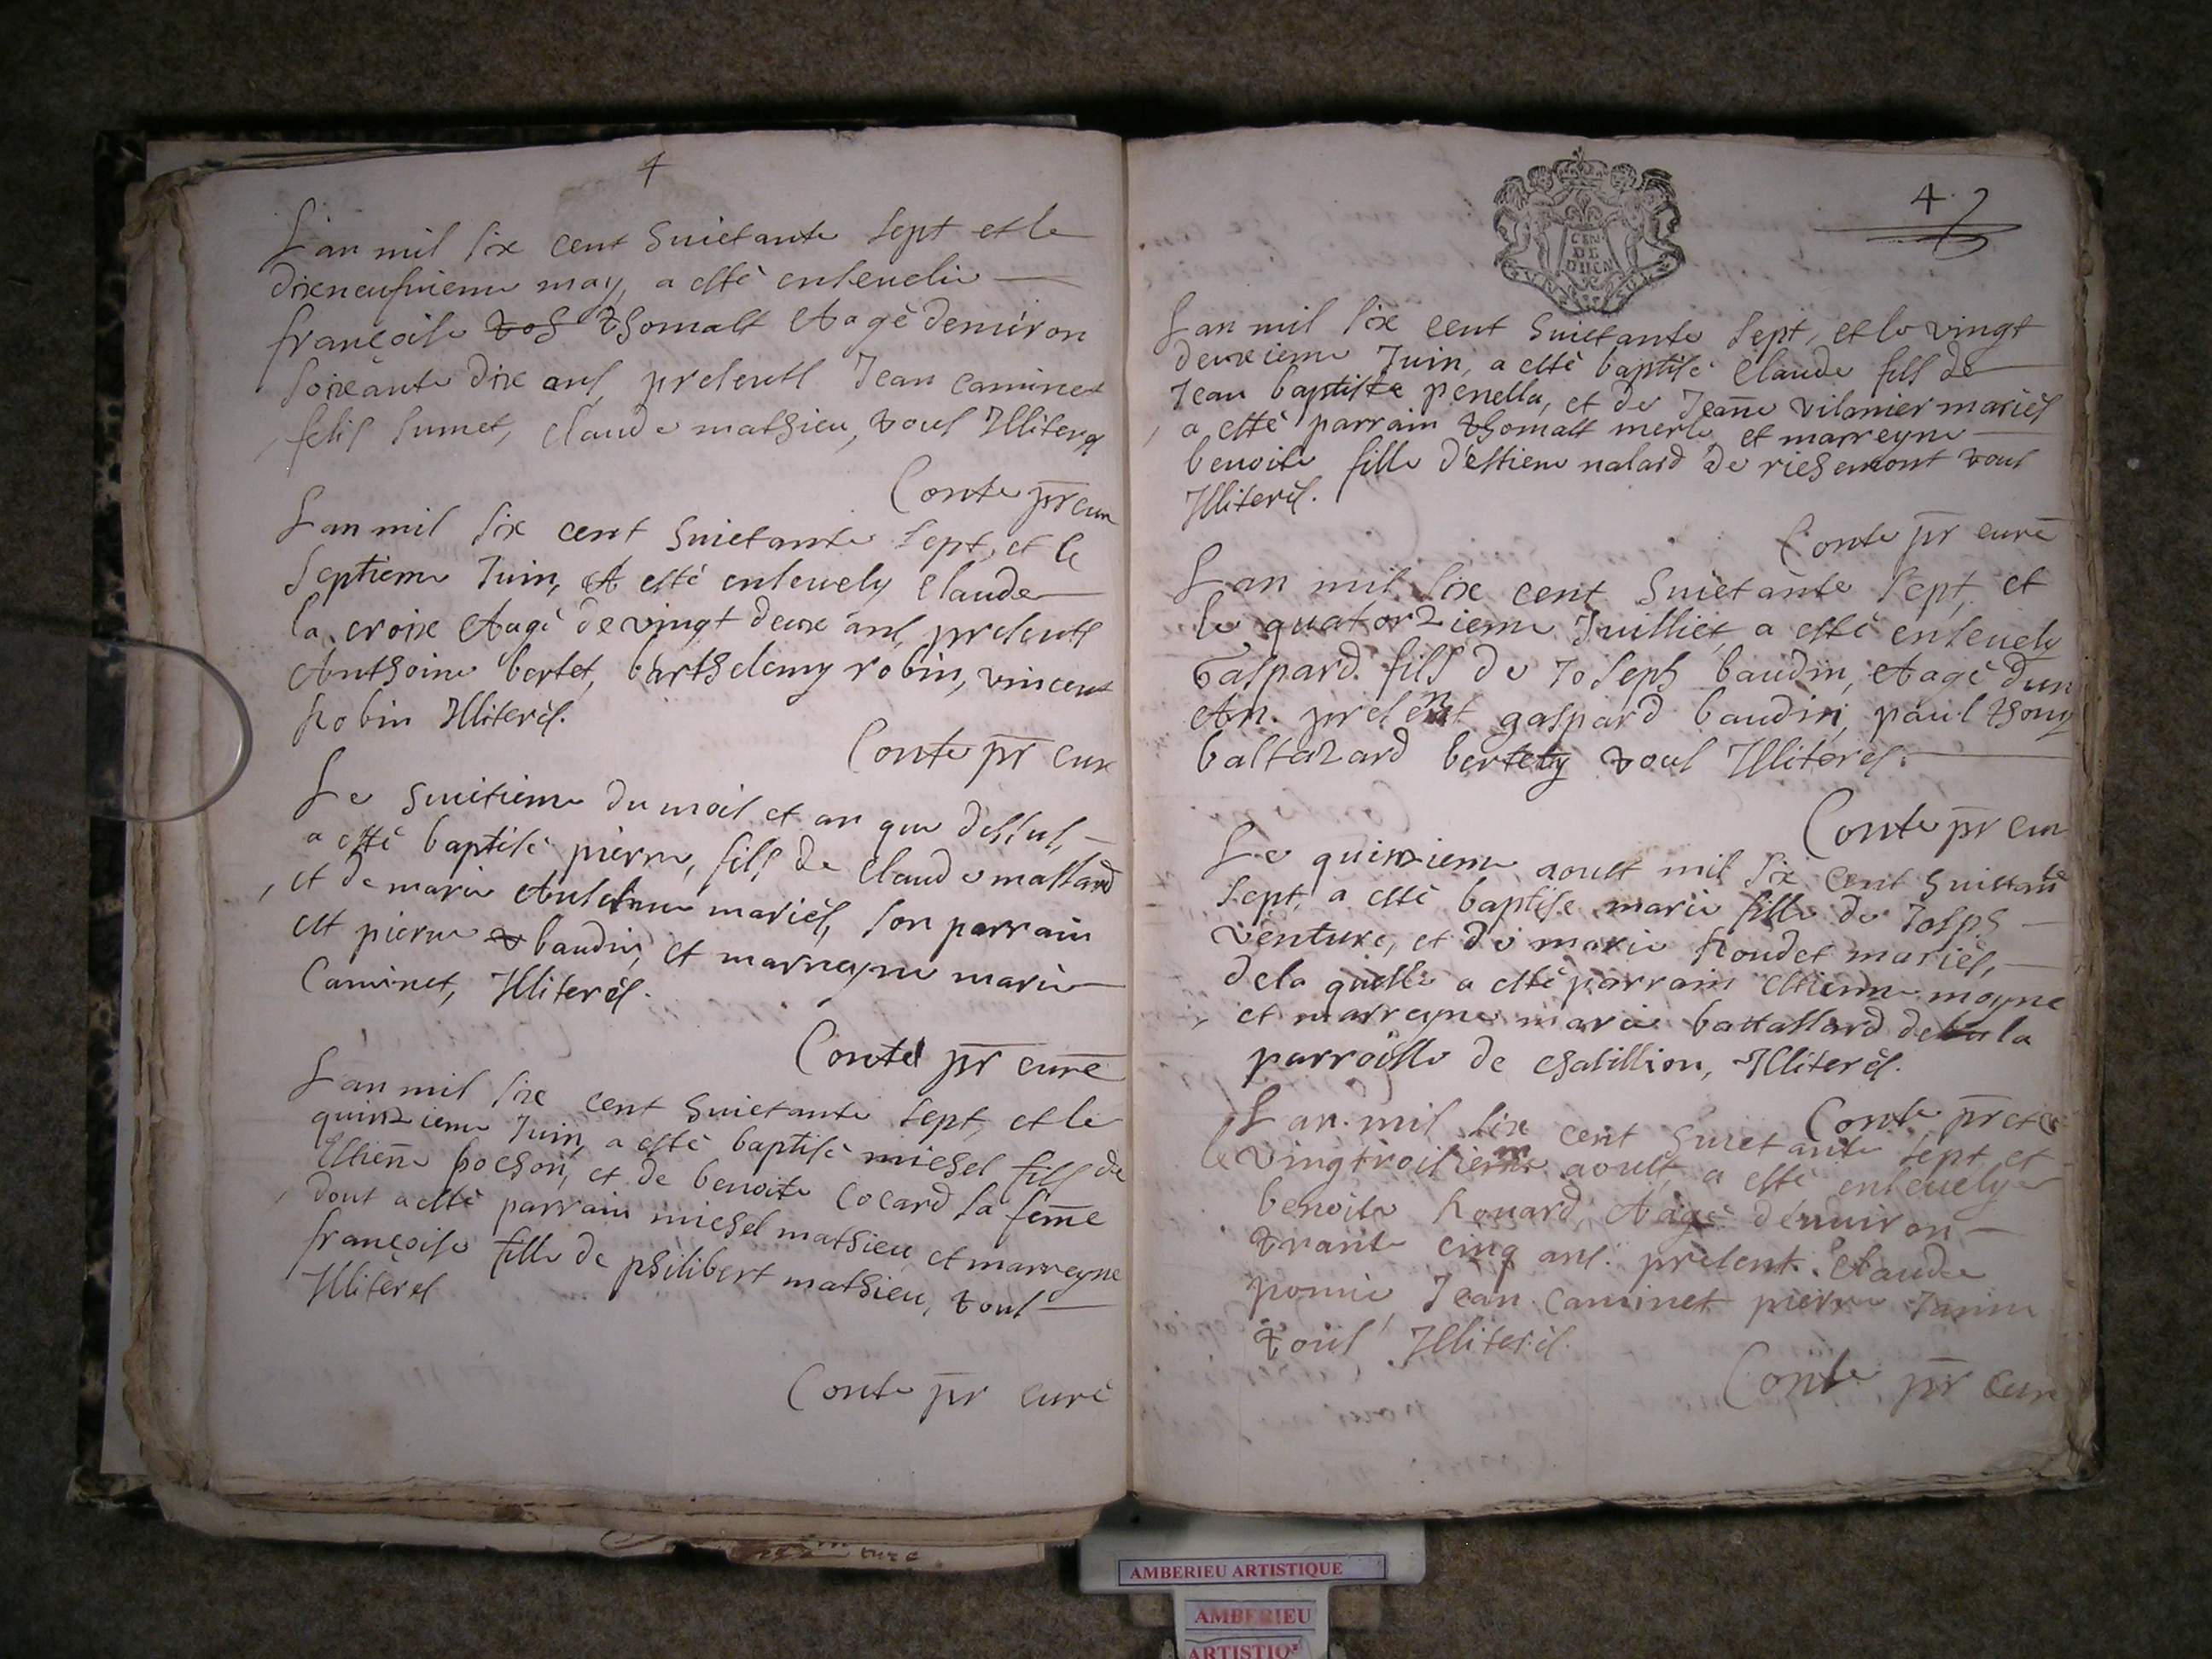 4
L'an mil six cent huictante sept et le
dixneufuieme may, a esté enseuelie
francoise thomass Aagé denuiron
soixante dix ans, presents Jean caminet
felis sumet, claude mathieu, tous Illiterés
Conte pr cure
L'an mil six cent huictante sept, et le
septieme Juin, A esté enseuely claude
la croix Aagé de vingt deux ans, presents
Anthoine bertet, barthelemy robin, vincent
Robin Illiterés.
Conte pr cure
Le huitieme du mois et an que dessus,
a esté baptisé pierre, fils de claude massard
et de marie Anselme mariés, son parrain
est pierre baudin, et marreyne marie
Caminet, Illiterés.
Conte pr curé
L'an mil six cent huictante sept, et le
quinzieme Juin, a esté baptisé michel fils de
Estiene pochon, et de benoite Cocard sa feme
dont a esté parrain michel mathieu et marreyne
francoise fille de philibert mathieu, tous
Illiterés
Conte pr curé
4.
GEN.
DE
DIION
L'an mil six cent huictante sept, et le vingt
deuxieme Juin, a esté baptisé claude fils de
Jean baptiste penella, et de Jeane vilanier mariés
a esté parrain thomass merle et marreyne
benoite fille d'estiene nalard de richemont tous
Illiterés.
Conte pr curé
L'an mil six cent huictante sept, et
le quatorzieme Juilliet, a esté enseuely
Gaspard fils de Joseph baudin, Aagé dun
An. present gaspard baudin, paul thony
baltazard bertety tous Illiterés.
Conte pr cure
Le quinzieme aoust mil six cent huictante
sept, a esté baptisé marie fille de Josph
venture, et de marie Roudet mariés,
dela quelle a esté parrain estienne moyne
et marreyne marie battallard de la
parroisse de chatillion, Illiterés.
Conte pr cure
L'an mil six cent huictante sept et
le vingtroisieme aoust, a esté enseuely
benoite Rouard, Aagé denuiron
trante cinq ans. present. Claude
pomie, Jean Caminet pierre Janin
tous Illiterés.
Conte pr cure
AMBERIEU ARTISTIQUE
AMBERIEU
ARTISTIQ